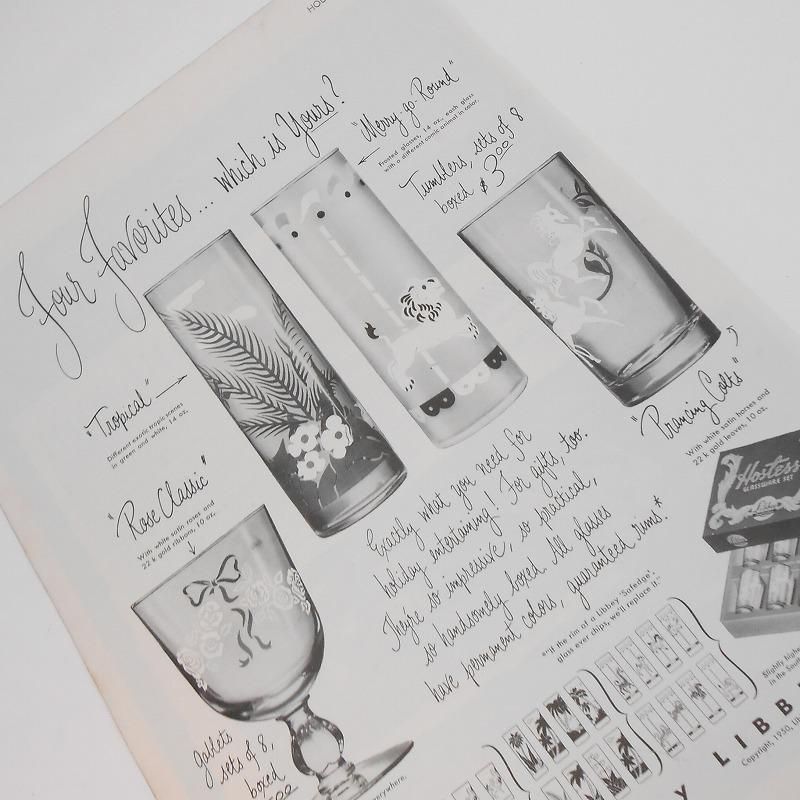 Four Favorites... which is Yours?
"Merry-go-Round"
Frosted glasses, 14 oz., each glass
with a different comic animal in color.
Tumblers, sets of 8
boxed $3.00
"Tropical"
Different exotic tropic scenes
in green and white, 14 oz.
"Prancing Colts"
With white satin horses and
22 k gold leaves, 10 oz.
"Rose Classic"
With white satin roses and
22 k gold ribbons, 10 oz.
Exactly what you need for
holiday entertaining. For gifts, too.
They're so impressive, so practical,
so handsomely boxed. All glasses
have permanent colors, guaranteed rims.*
Hostess
GLASSWARE SET
*"If the rim of a Libbey 'Safedge'
glass ever chips, we'll replace it."
Goblets
sets of 8,
boxed
everywhere.
Slightly highe
in the Sou
Y LIBB
Copyright, 1950, Lib